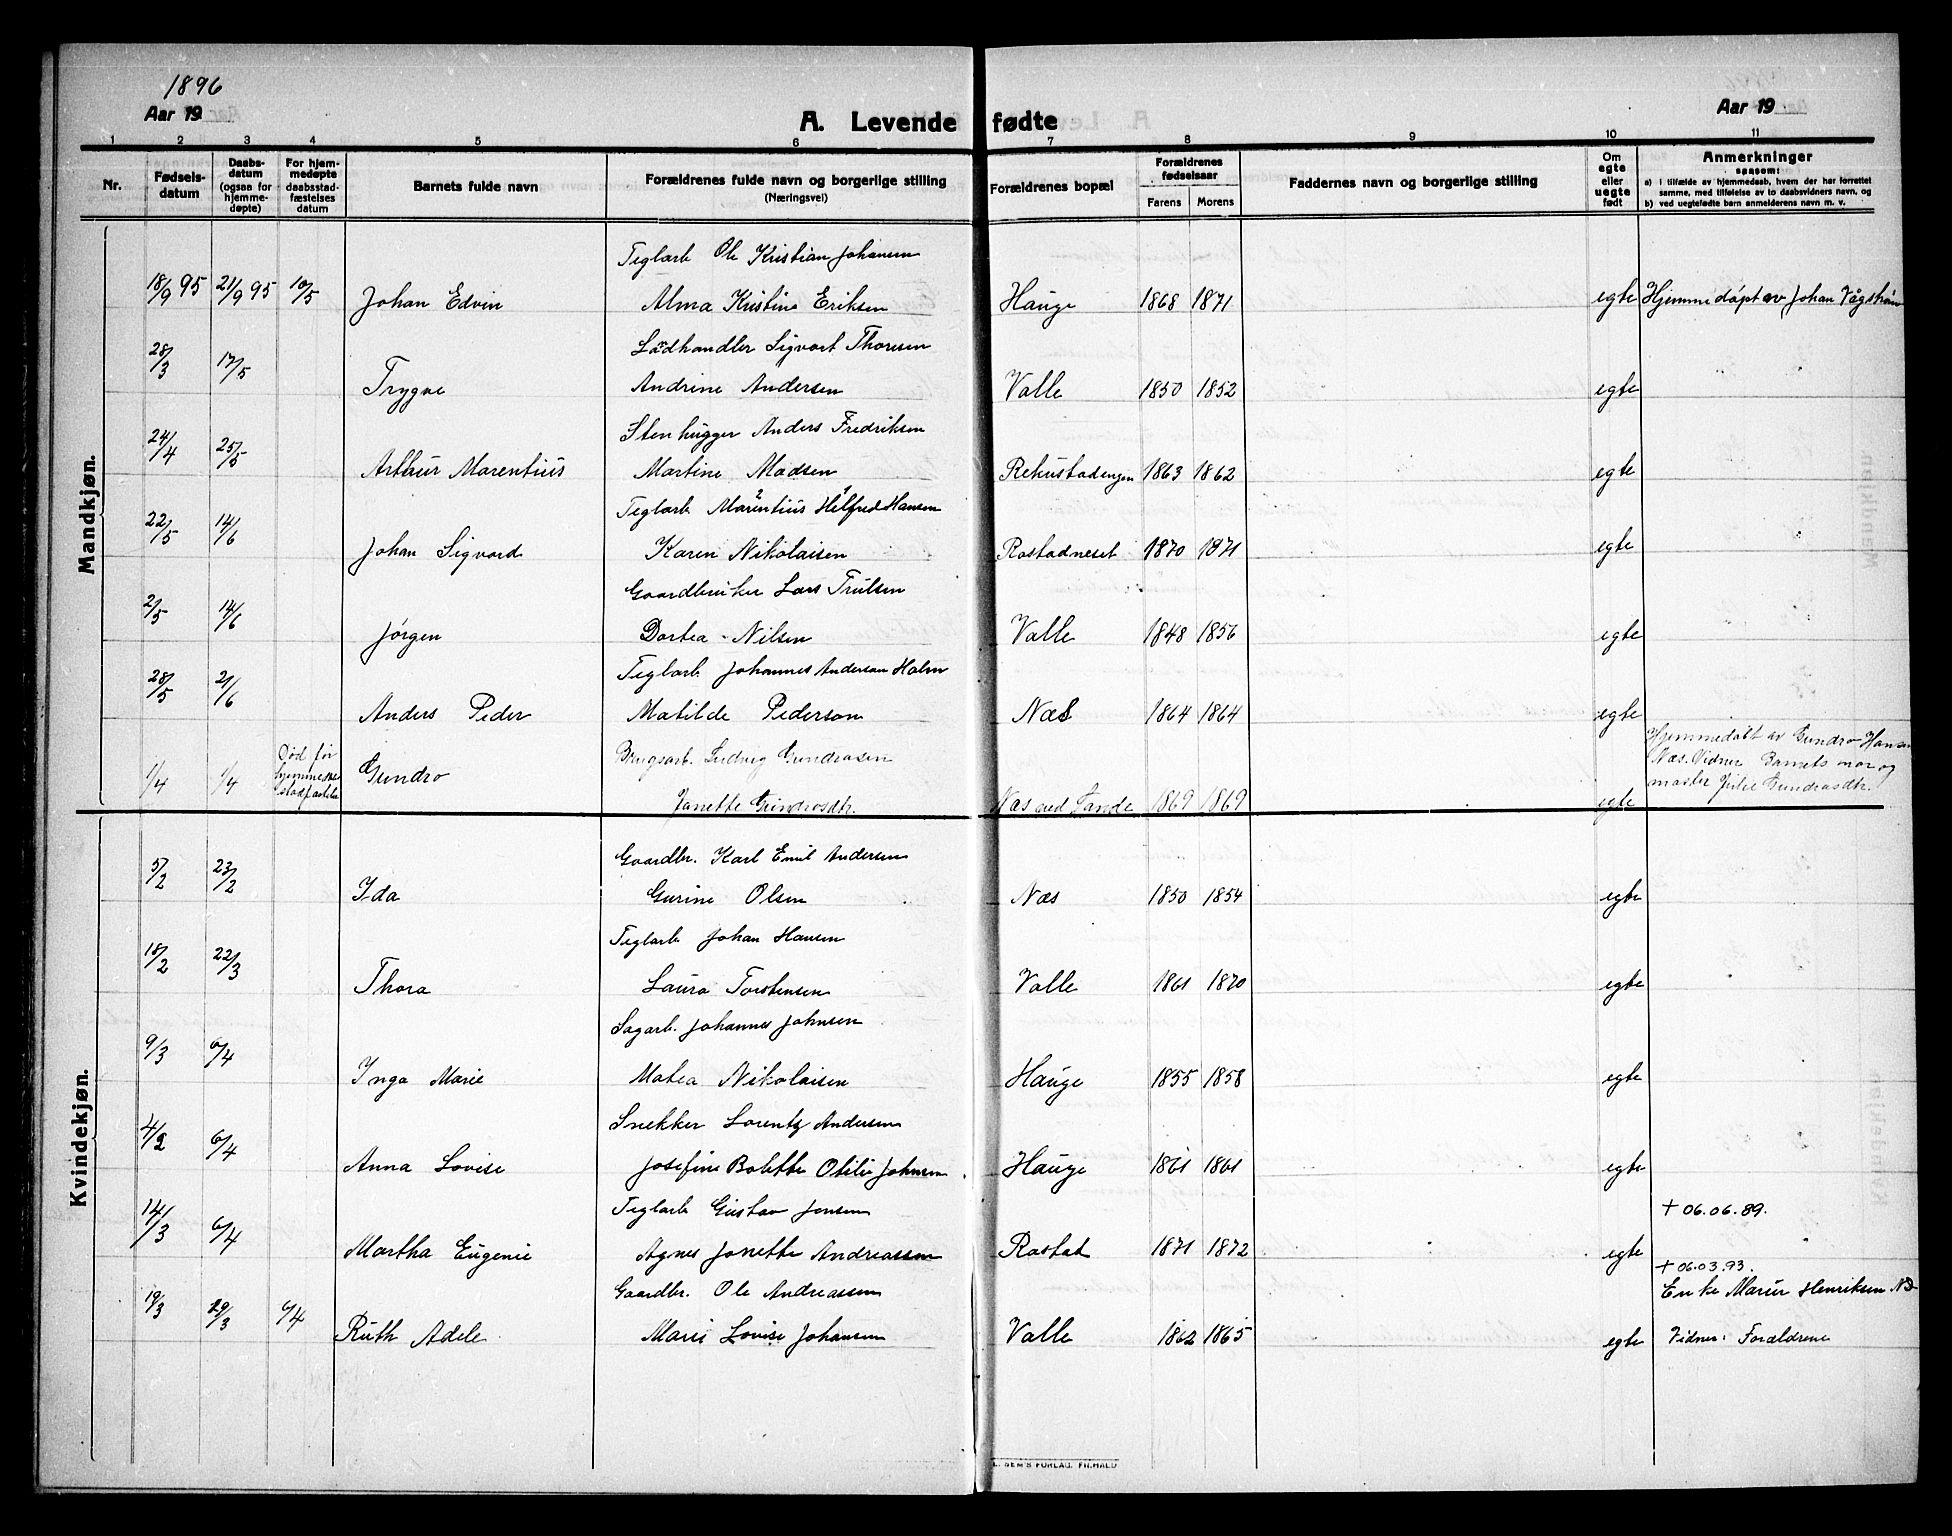 1896
Aar 19
Aar 19
A. Levende fødte
1 2 3 4 5 6 7 8 9 10 11
Nr.
Fødsels-
datum
Daabs-
datum
(ogsaa for
hjemme-
døpte)
For hjem-
medøpte
daabsstad-
fæstelses
datum
Barnets fulde navn
Forældrenes fulde navn og borgerlige stilling
(Næringsvei)
Forældrenes bopæl
Forældrenes
fødselsaar
Farens Morens
Faddernes navn og borgerlige stilling
Om
egte
eller
uegte
født
Anmerkninger
saasom:
a) i tilfælde av hjemmedaab, hvem der har forrettet
samme, med tilføielse av to daabsvidners navn, og
b) ved uegtefødte barn anmelderens navn m. v.
Mandkjøn.
Teglarb Ole Kristian Johansen
18/9 95 21/9 95 10/5 Johan Edvin Alma Kristine Eriksen Hauge 1868 1871 egte Hjemmedøpt av Johan
Sigvart Thoresen
28/3 17/5 Trygve Andrine Andersen Valle 1850 1852 egte
Stenhugger Anders Fredriksen
24/4 25/5 Arthur Marentius Martine Madsen 1863 1862 egte
Teglarb Marentius 2 Helfred 1 Hansen
22/5 14/6 Johan Sigvard Karen Nikolaisen Rostadneset 1870 1871 egte
Gaardbruker Lars Trulsen
2/5 14/6 Jörgen Dortea Nilsen Valle 1848 1856 egte
Teglarb. Johannes Anderson Holm
28/5 21/6 Anders Peder Matilde Pederson Næs 1864 1864 egte
Død før
hjemmedåbs
Brugsarb. Ludvig Gundrosen
1/4 1/4 Gundro
Janette Gundrosdtr. Næs ved Sande 1869 1869 egte
Hjemmedøbt av Gundro Hansen
Næs. Vidner Barnets mor og
moster Julie Gundrosdtr.
Kvindekjøn.
Gaardbr. Karl Emil Andersen
5/2 23/2 Ida Gurine Olsen Næs 1850 1854 egte
Teglarb Johan Hansen
18/2 22/3 Thora Laura Torstensen Valle 1861 1870 egte
Sagarb. Johannes Johnsen
9/3 6/4 Inga Marie Matea Nikolaisen Hauge 1855 1858 egte
Snekker Lorentz Andersen
4/2 6/4 Anna Lovise Josefine Bolette Otilie Johnsen Hauge 1861 1861 egte
Teglarb Gustav Jensen + 06.06.89.
14/3 6/4 Martha Eugenie Agnes Jonette Andreassen Rostat 1871 1872 egte
+ 06.03.93.
Gaardbr. Ole Andreassen Enke Maren Henriksen
19/3 29/3 6/4 Ruth Adele Marie Lovise Johansen Valle 1862 1865 egte Vidner: Forældrene
FORLAG, FR.HALD